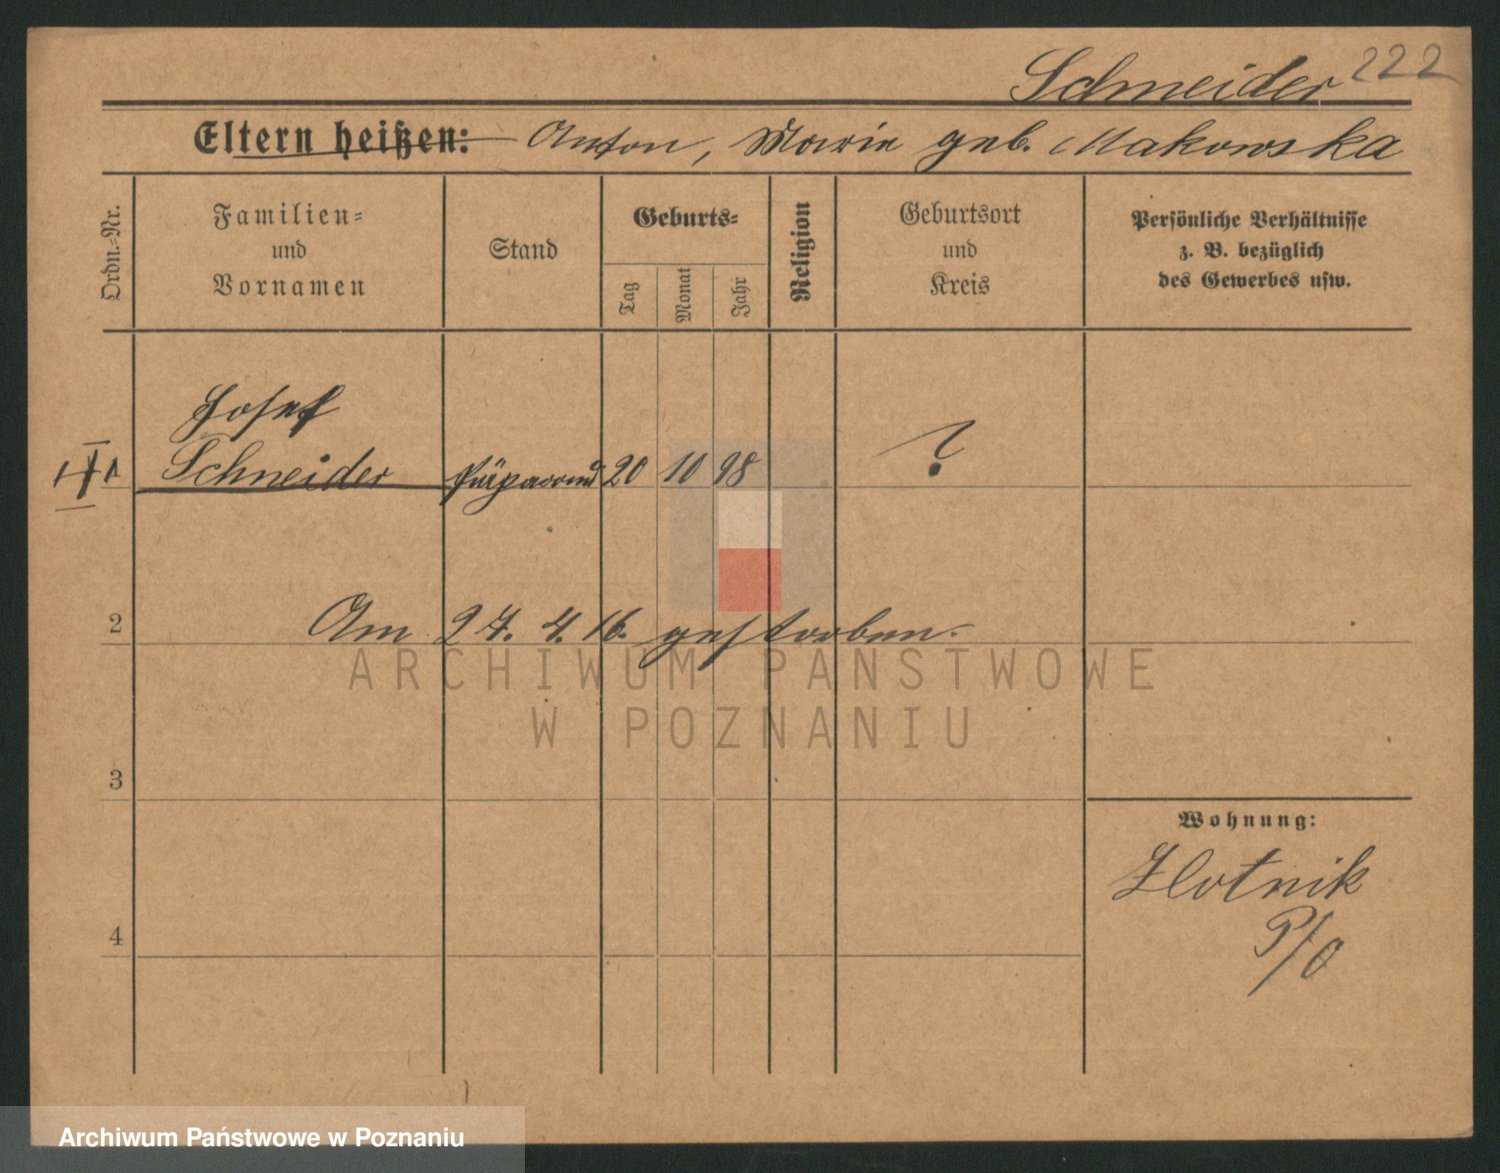 Schneider 222
Eltern heißen: Anton, Marie geb. Makowska
Ordn.-Nr.
Familien-
und
Vornamen
Stand
Geburts-
Tag
Monat
Jahr
Religion
Geburtsort
und
Kreis
Persönliche Verhältnisse
z. B. bezüglich
des Gewerbes usw.
Josef
1 Schneider Präparand 20 10 98 ?
2
Am 27. 4. 16. gestorben.
ARCHIWUM PAŃSTWOWE
W POZNANIU
3
Wohnung:
Zlotnik
P/O
4
Archiwum Państwowe w Poznaniu